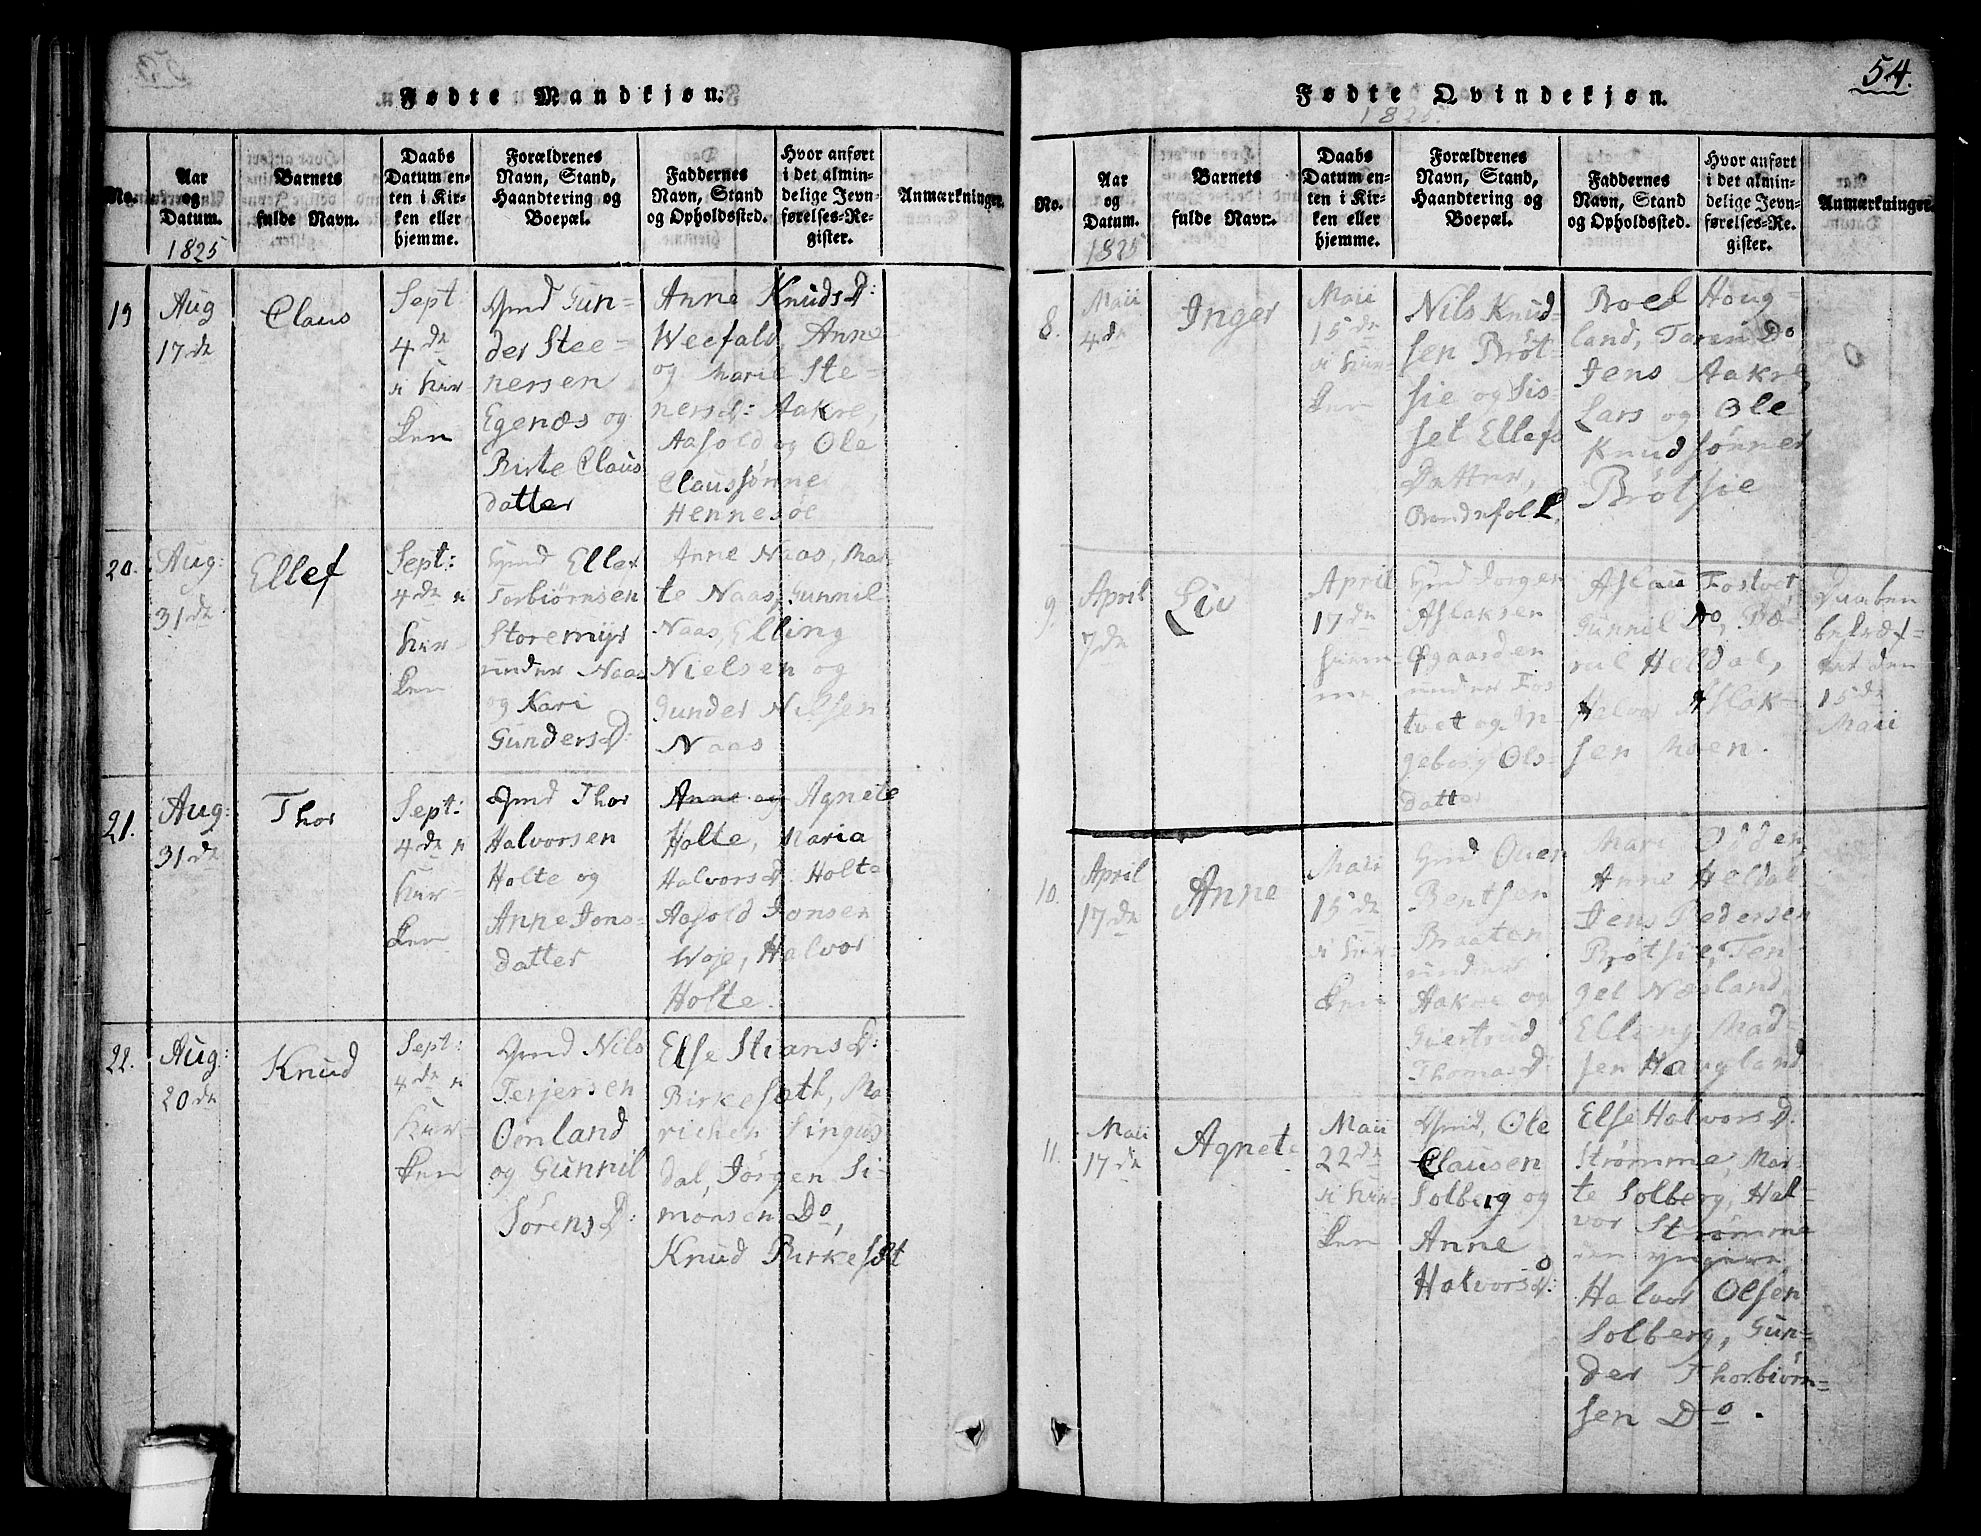 Fødte Mandkjøn.
No.
Aar
og
Datum.
1825
Barnets
fulde Navn.
Daabs
Datum en-
ten i Kir-
ken eller
hjemme.
Forældrenes
Navn, Stand,
Haandtering og
Boepæl.
Faddernes
Navn, Stand
og Opholdssted.
Hvor anført
i det almin-
delige Jevn-
førelses-Re-
gister.
Anmærkninger.
19
Aug
17de
Claus
Sept
4de
i Kir
ken
Gmd Gun-
der Stee-
nersen
Egenæs og
Birte Claus
datter
Anne KnudsD:
Weefald, Anne
og Marie Ste-
nersd: Aakre,
Aasold og Ole
Claussønner
Hennesøe
20.
Aug:
31de
Ellef
Sept:
4de i
Kir-
ken
Gmd Ellef
Torbiørnsen
Storemyr
under Naas
og Kari
GundersD:
Anne Naas, Mar
te Naas, Gunnil
Naas, Elling
Nielsen og
Gunder Nilsen
Naas
21.
Aug:
31de
Thor
Sept:
4de i
Kir-
ken
Gmd Thor
Halvorsen
Holte og
Anne Jons-
datter
Anne og Agnete
Holte, Maria
HalvorsD: Holte,
Aasold Jonsen
Woje, Halvor
Holte.
22.
Aug:
20de
Knud
Sept:
4de i
Kir-
ken
Gmd Nils
Terjersen
Omland
og Gunnil
SørensD:
Else StiansD:
Birkesøth, Ma
richen Lingus
dal, Jørgen Si-
monsen Do,
Knud Birkesøt
54.
Fødte Qvindekjøn.
1825.
No.
Aar
og
Datum.
1825
Barnets
fulde Navn.
Daabs
Datum en-
ten i Kir-
ken eller
hjemme.
Forældrenes
Navn, Stand,
Haandtering og
Boepæl.
Faddernes
Navn, Stand
og Opholdssted.
Hvor anført
i det almin-
delige Jevn-
førelses-Re-
gister.
Anmærkninger.
8.
Maii
4de
Inger
Maii
15de
i Kir-
ken
Nils Knud-
sen Brøt-
sie og Sis-
set Ellefs
Datter,
Bondefolk.
Boel Houg-
land, Taren Do
Jens Aakre,
Lars og Ole
Knudsønner
Brøtsie
9.
April
7de
Liv
April
17de
hiem
me
Gmd Jørgen
Aslaksen
Øgaarden
under Fos
tvet og In
geborg Ols-
datter
Aslau Fostvet
Gunnil Do, Bæ-
rul Heldal,
Halvor Aslak-
sen Moen.
Daaben
bekræf-
tet den
15de
Maii
10.
April
17de
Anne
Maii
15de
i Kir-
ken
Gmd Oven
Bentsen
Braaten
under
Aakre og
Giertrud
ThomasD:
Mari Odden,
Anne Heldal
Jens Pedersen
Brøtsie, Ten
gel Næsland,
Elling Mad-
sen Haugland
11.
Maii
17de
Agnete
Maii
22de
i Kir-
ken
Gmd, Ole
Clausen
Solberg og
Anne
HalvorsD:
Else HalvorsD:
Strømme, Mar-
te Solberg, Hal-
vor Strømme
den yngere
Halvor Olsen
Solberg, Gun-
der Thorbiørn-
sen Do.